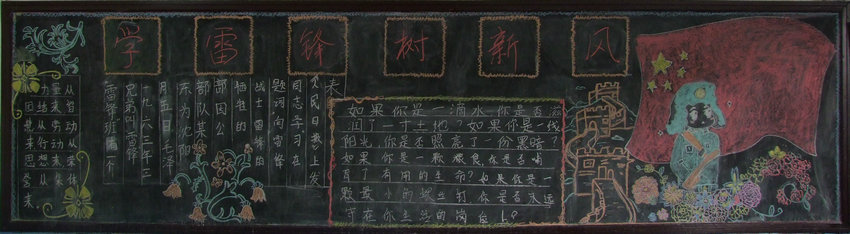 学雷锋树新风
力量从
团结来智
慧从劳动
来行动从
思想来荣
誉从集体
来
雷锋班有一个
兄弟叫雷锋
一九六三年三
月五日毛泽
东为沈阳
部队某
部因公
牺牲的
战士雷锋的
题词向雷锋
同志学习在
人民日报上发
表
如果你是一滴水,你是否滋
润了一寸土地?如果你是一线
阳光,你是否照亮了一份黑暗?
如果你是一颗粮食,你是否哺
育了有用的生命?如果你是一
颗最小的螺丝钉,你是否永远
守在你生活的岗位上?